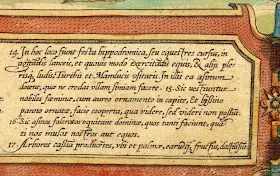 14. In hoc loco sunt festa hippodromica, seu equestres cursus, in
lanceis, et quovis modo exercitandi equos, & alijs ple-
risq, ludis, Turchis et Mamlucis usitatis. In illis ea
docent, que ne credas vilam simiam facere. 15. Sic vestiuntur
nobiles fæminæ, cum aureo ornamento in capite, et byssino
panno ornatæ, facie cooperta, qua videre, sed videri non possūt.
16. Sic asinos faleratos equitant dominæ, quos tanti faciunt, qua
ti nos mulos nostros aut equos.
17. Arbores cassiā producētes, uti et palmæ, earūq, fructus, dactilosū